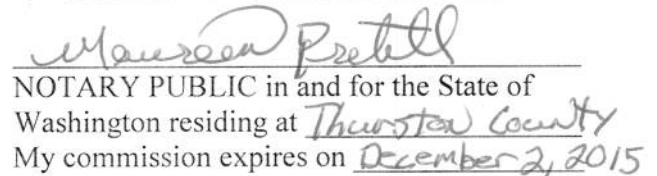 Maureen
NOTARY PUBLIC in and for the State of
Washington residing at Thurston County
My commission expires on December 2, 2015